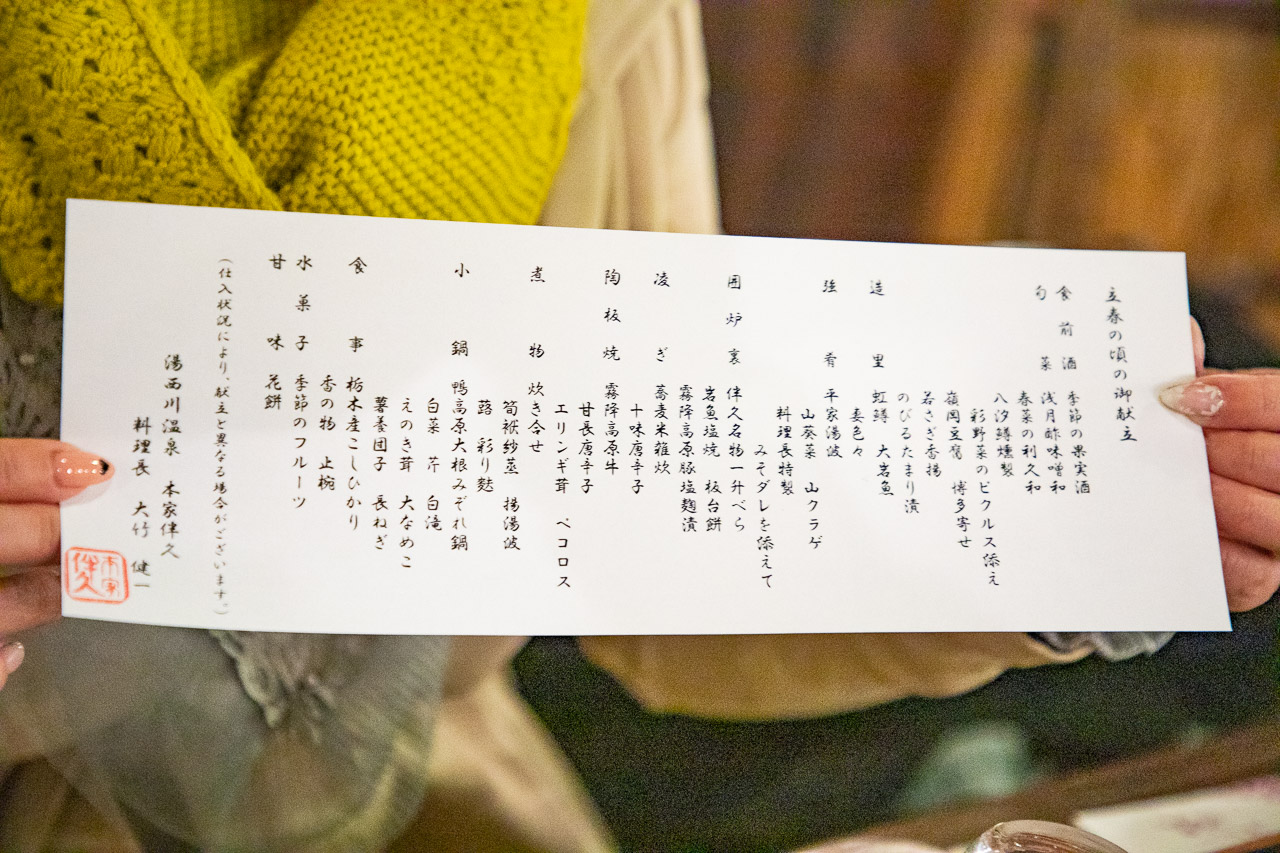 立春の頃の御献立
食前酒 季節の果実酒
旬菜 浅月酢味噌和
春菜の利久和
八汐鱒燻製
彩野菜のピクルス添え
嶺岡豆腐 博多寄せ
若さぎ香揚
のびるたまり漬
造里 虹鱒 大岩魚
妻色々
強肴 平家湯波
山葵菜 山クラゲ
料理長特製
みそダレを添えて
囲炉裏 伴久名物一升べら
岩魚塩焼 板台餅
霧降高原豚塩麹漬
凌ぎ 蕎麦米雑炊
十味唐辛子
陶板焼 霧降高原牛
甘長唐辛子
エリンギ茸 ペコロス
煮物 炊き合せ
筍袱紗蒸 揚湯波
蕗 彩り麩
小鍋 鴨高原大根みぞれ鍋
白菜 芹 白滝
えのき茸 大なめこ
薯養団子 長ねぎ
食事 栃木産こしひかり
香の物 止椀
水菓子 季節のフルーツ
甘味 花餅
(仕入状況により、献立と異なる場合がございます。)
湯西川温泉 本家伴久
料理長 大竹 健一
本家
伴久